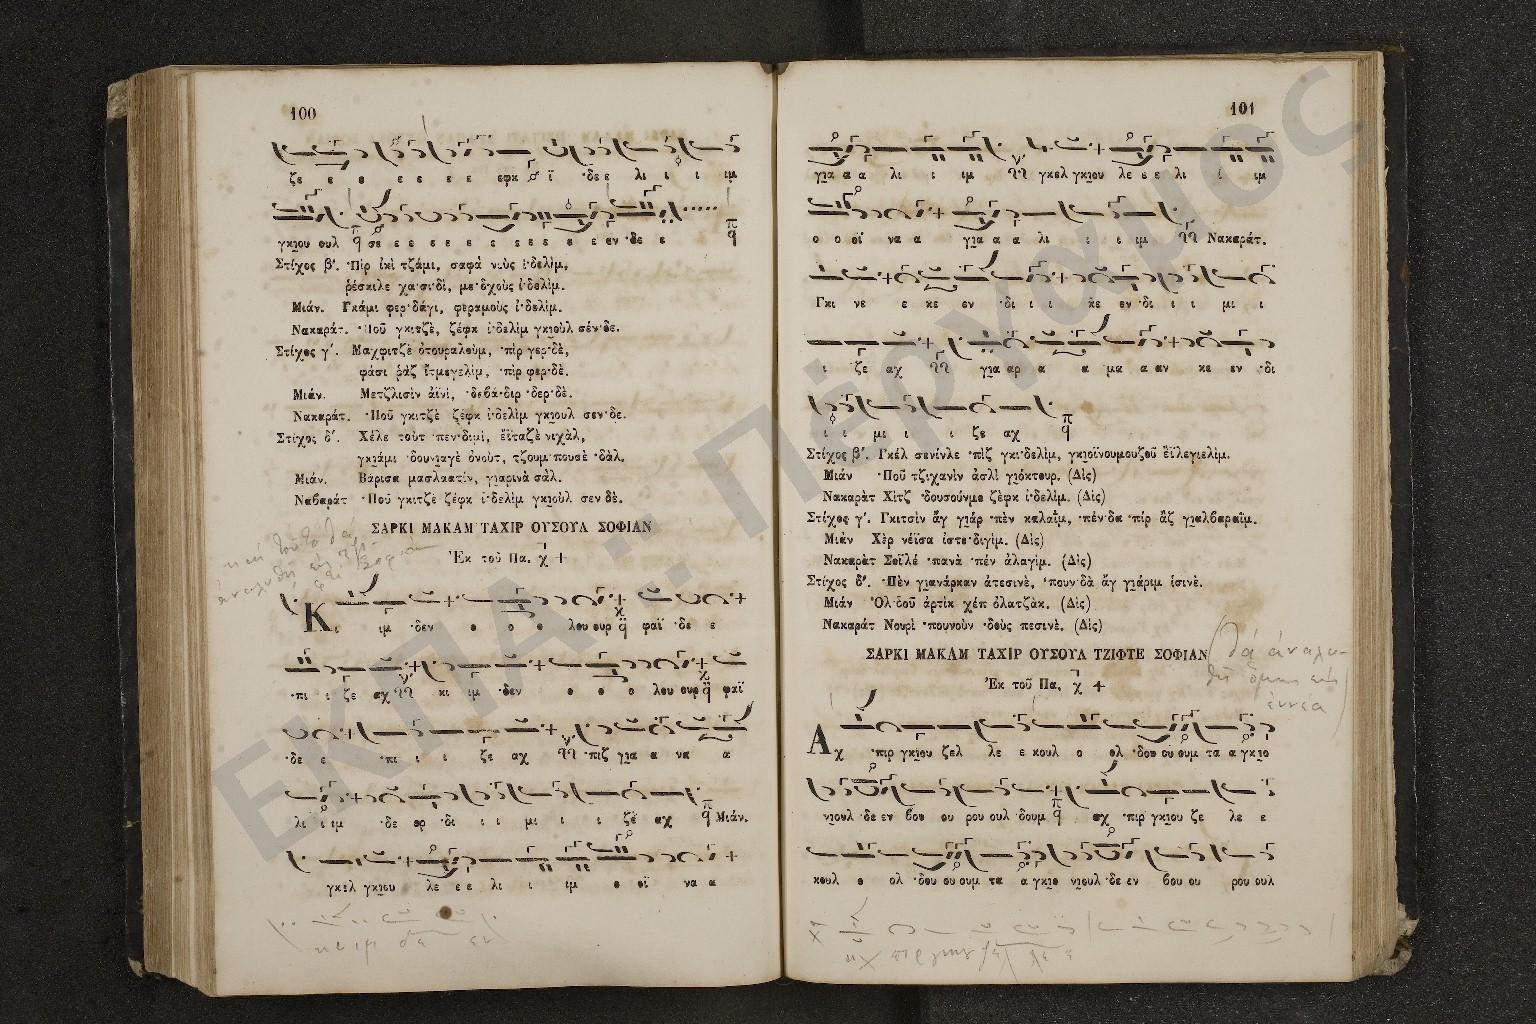 100
ζε ε ε ε ε ε ε εφκ ϊ ·δε ε λι ι ι ιμ
γκιου ουλ σε ε ε ε ε ε ε ε ε ε ε ε εν ·δε ε
Στίχος β΄. ·Πὶρ ἰκὶ τζάμι, σαφὰ νιοὺς ἰ·δελὶμ,
ῥέσκιλε χα·σι·δὶ, με·δχοὺς ἰ·δελὶμ.
Μιάν. Γκάμι φερ·δάγι, φεραμοὺς ἰ·δελὶμ.
Νακαράτ. ·Ποῦ γκιτζὲ, ζέφκ ἰ·δελὶμ γκιοὺλ σέν·δε.
Στίχος γ΄. Μαχφιτζὲ ὀτουραλοὺμ, ·πὶρ γερ·δὲ,
φάσι ῥὰζ ἴτμεγελὶμ, ·πὶρ φερ·δὲ.
Μιάν. Μετζλισὶν ἀϊνὶ, ·δεβά·διρ ·δερ·δὲ.
Νακαράτ. ·Ποῦ γκιτζὲ ζέφκ ἰ·δελὶμ γκιουλ σεν·δε.
Στίχος δ΄. Χέλε τοὺτ ·πεν·διμὶ, ἔϊταζὲ νιχὰλ,
γκιάμι ·δουνιαγὲ ὀνοὺτ, τζουμ·πουσὲ ·δὰλ.
Μιάν. Βάρισα μασλαατίν, γιαρινὰ σὰλ.
Ναβαράτ ·Ποῦ γκιτζὲ ζέφκ ἰ·δελὶμ γκιοὺλ σεν δὲ.
ΣΑΡΚΙ ΜΑΚΑΜ ΤΑΧΙΡ ΟΥΣΟΥΛ ΣΟΦΙΑΝ
Ἐκ τοῦ Πα.
Κι ιμ ·δεν ο ο ο λου ουρ φαϊ ·δε ε
·πι ι ζε αχ κι ιμ ·δεν ο ο ο λου ουρ φαϊ
·δε ε ·πι ι ι ζε αχ ·πιζ για α να α
λι ι ιμ ·δε ερ ·δι ι ι μι ι ι ζε αχ Μιάν.
γκελ γκιου λε ε ε λι ι ιμ ο οϊ να α
101
για α α λι ι ιμ γκελ γκιου λε ε ε λι ι ιμ
ο ο οϊ να α για α α λι ι ι ιμ Νακαράτ.
Γκι νε ε κε εν ·δι ι ι κε εν ·δι ι ι μι ι
ι ζε αχ για αρ α α μα α αν κε εν ·δι
ι ι μι ι ι ζε αχ
Στίχος β΄. Γκέλ σενίνλε ·πὶζ γκι·δελὶμ, γκιοϊνουμουζοῦ ἔϊλεγιελὶμ.
Μιάν ·Ποῦ τζιχανὶν ἀσλὶ γιόκτουρ. (Δὶς)
Νακαρὰτ Χὶτζ ·δουσούνμε ζέφκ ἰ·δελὶμ. (Δὶς)
Στίχος γ΄. Γκιτσὶν ἄγ γιάρ ·πὲν κπλαΐμ, ·πέν·δα ·πὶρ ἄζ γιαλβαραΐμ.
Μιάν Χὲρ νέϊσα ἰστε·διγὶμ. (Δὶς)
Νακαρὰτ Σοϊλέ ·πανὰ ·πέν ἀλαγὶμ. (Δὶς)
Στίχος δ΄. ·Πὲν γιανάρκαν ἀτεσινὲ, ·πουν·δὰ ἄγ γιάριμ ἰσινὲ.
Μιάν Ὀλ·δοῦ ἀρτὶκ χέπ ὀλατζὰκ. (Δὶς)
Νακαρὰτ Νουρὶ ·πουνοὺν ·δοὺς πεσινὲ. (Δὶς)
ΣΑΡΚΙ ΜΑΚΑΜ ΤΑΧΙΡ ΟΥΣΟΥΛ ΤΖΙΦΤΕ ΣΟΦΙΑΝ
Ἐκ τοῦ Πα.
Αχ ·πιρ γκιου ζελ λε ε κουλ ο ολ ·δου ου ουμ τα α γκιο
νιουλ ·δε εν βου ου ρου ουλ ·δουμ αχ ·πιρ γκιου ζε λε ε
κουλ ο ολ ·δου ου ουμ τα α γκιο νιουλ ·δε εν βου ου ρου ουλ
ΕΚΠΑ :: Πέργαμος